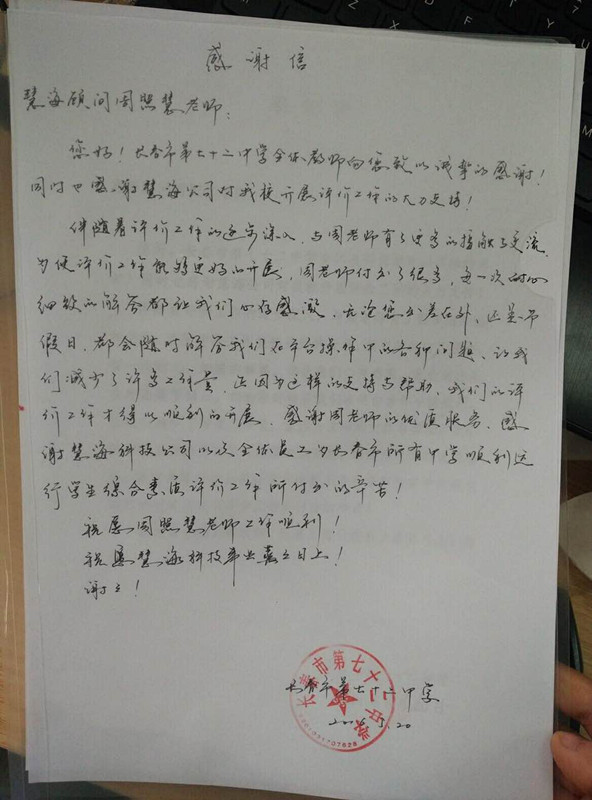 感谢信
慧海顾问周照慧老师:
您好!长春市第七十二中学全体教师向您致以诚挚的感谢!
同时也感谢慧海公司对我校开展评价工作的大力支持!
伴随着评价工作的逐步深入,与周老师有了更多的接触与交流,
为使评价工作能够更好的开展,周老师付出了很多,每一次耐心
细致的解答都让我们心存感激,无论您出差在外,还是节
假日,都会随时解答我们在平台操作中的各种问题,让我
们减少了许多工作量,正因为这样的支持与帮助,我们的评
价工作才得以顺利的开展,感谢周老师的优质服务,感
谢慧海科技公司以及全体员工为长春市所有中学顺利运
行学生综合素质评价工作所付出的辛苦!
祝愿周照慧老师工作顺利!
祝愿慧海科技事业蒸蒸日上!
谢谢!
长春市第七十二中学
长春市第七十二中学
5.20